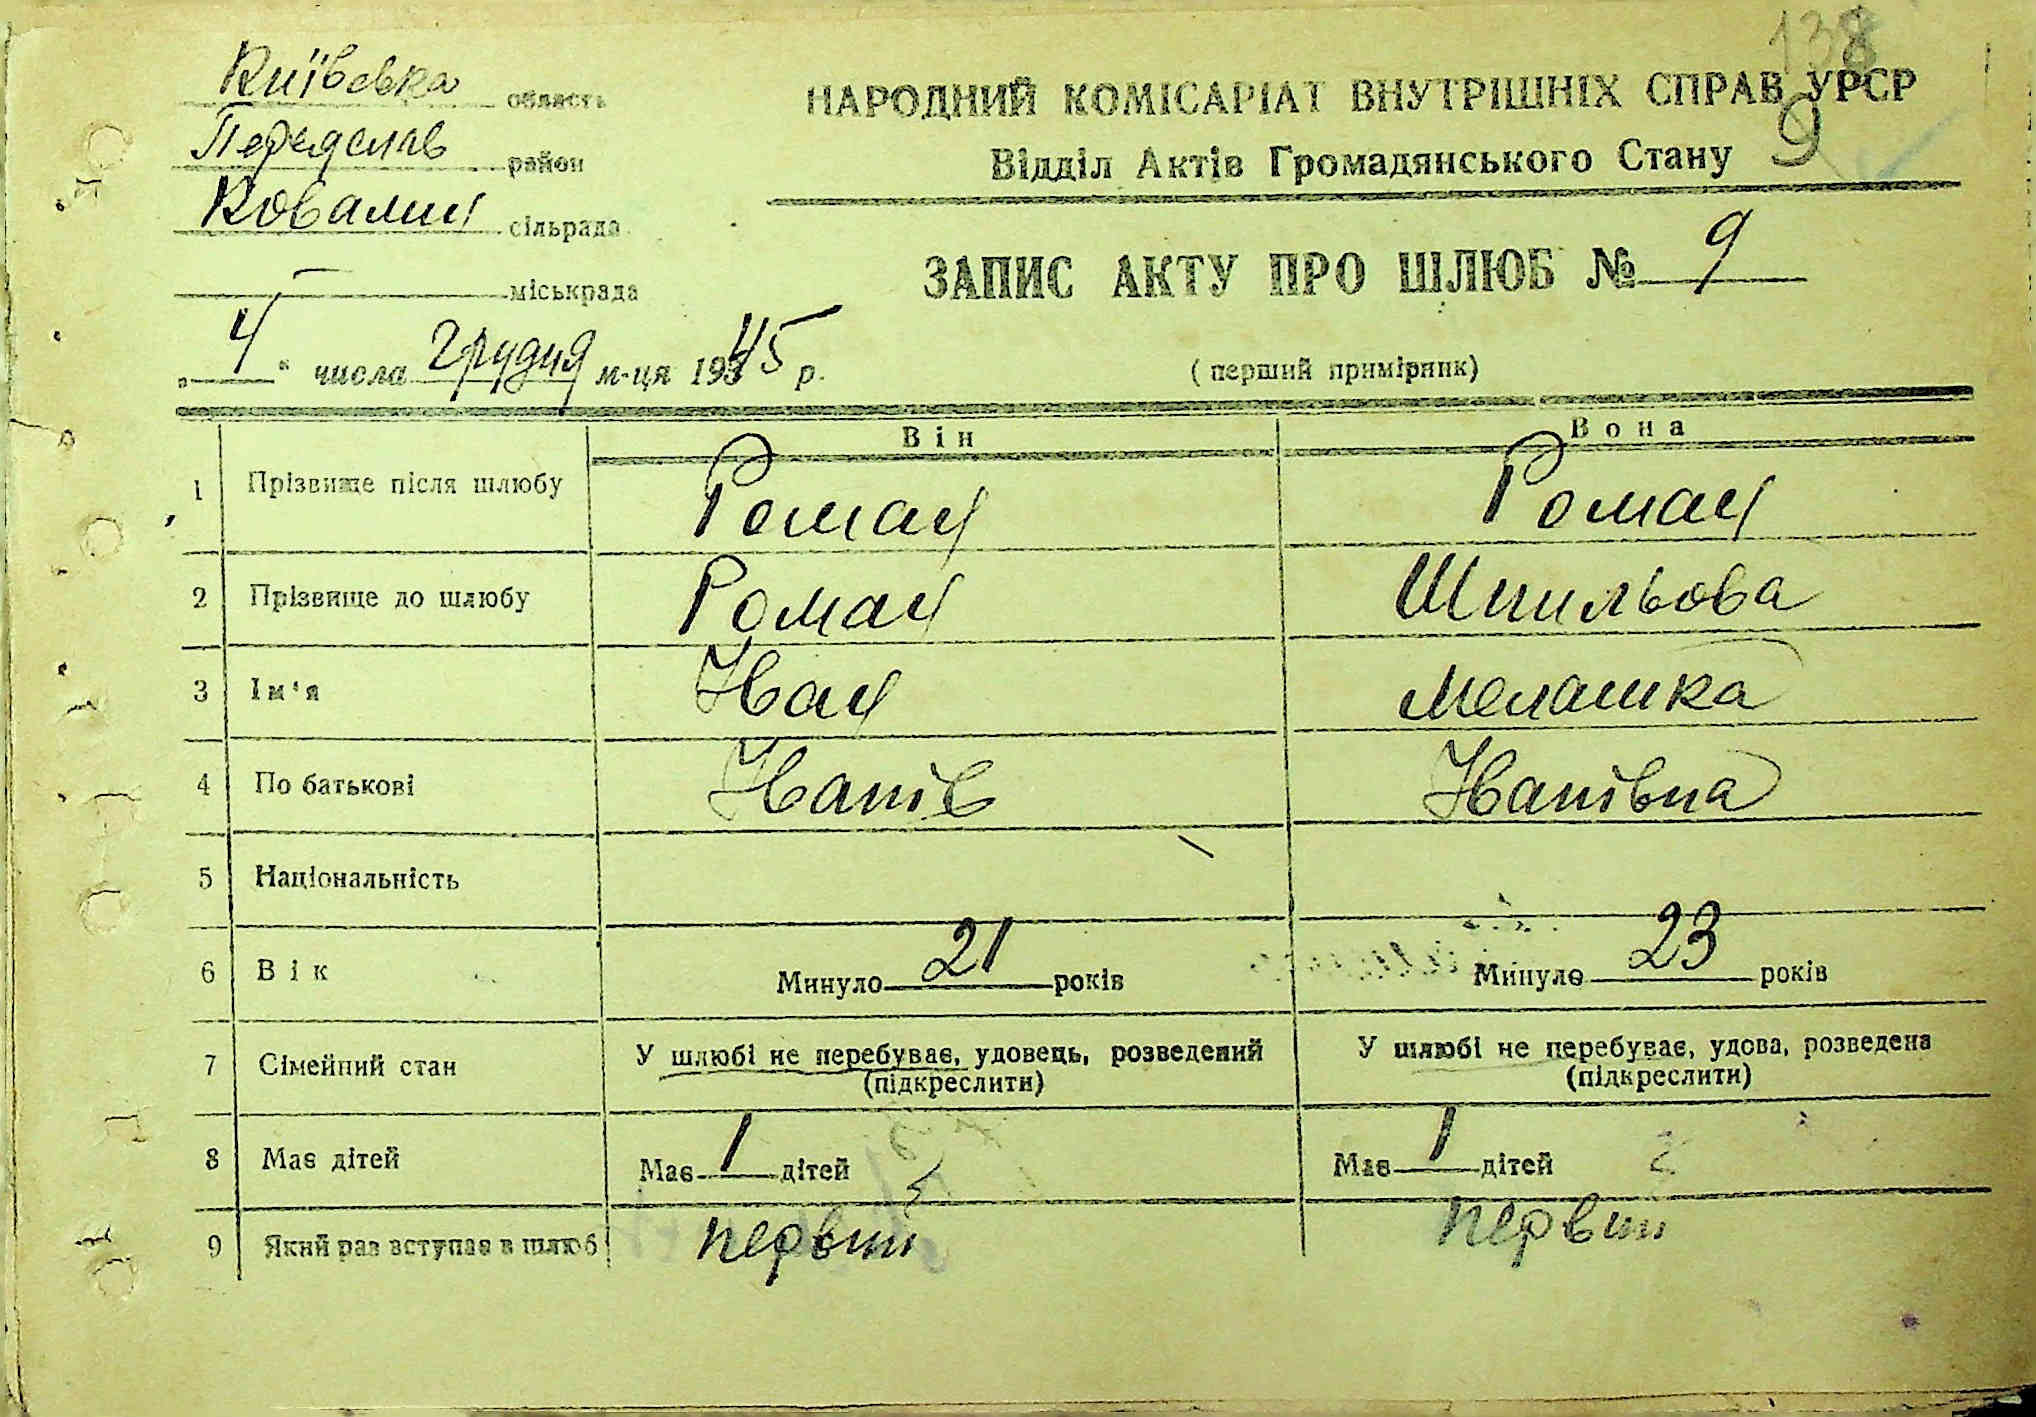 138
Київська область
Переяслав район
НАРОДНИЙ КОМІСАРІАТ ВНУТРІШНІХ СПРАВ УРСР
9
Відділ Актів Громадянського Стану
Ковалин сільрада
міськрада
ЗАПИС АКТУ ПРО ШЛЮБ № 9
„4“ числа грудня м-ця 1945 р.
(перший примірник)
Він Вона
1 Прізвище після шлюбу Роман Роман
2 Прізвище до шлюбу Роман Шпильова
3 Ім'я Іван Мелашка
4 По батькові Іванів Іванівна
5 Національність
6 Вік Минуло 21 років Минуло 23 років
7 Сімейний стан У шлюбі не перебуває, удовець, розведений У шлюбі не перебуває, удова, розведена
(підкреслити) (підкреслити)
8 Має дітей Має 1 дітей Має 1 дітей
9 Який раз вступає в шлюб первий первий